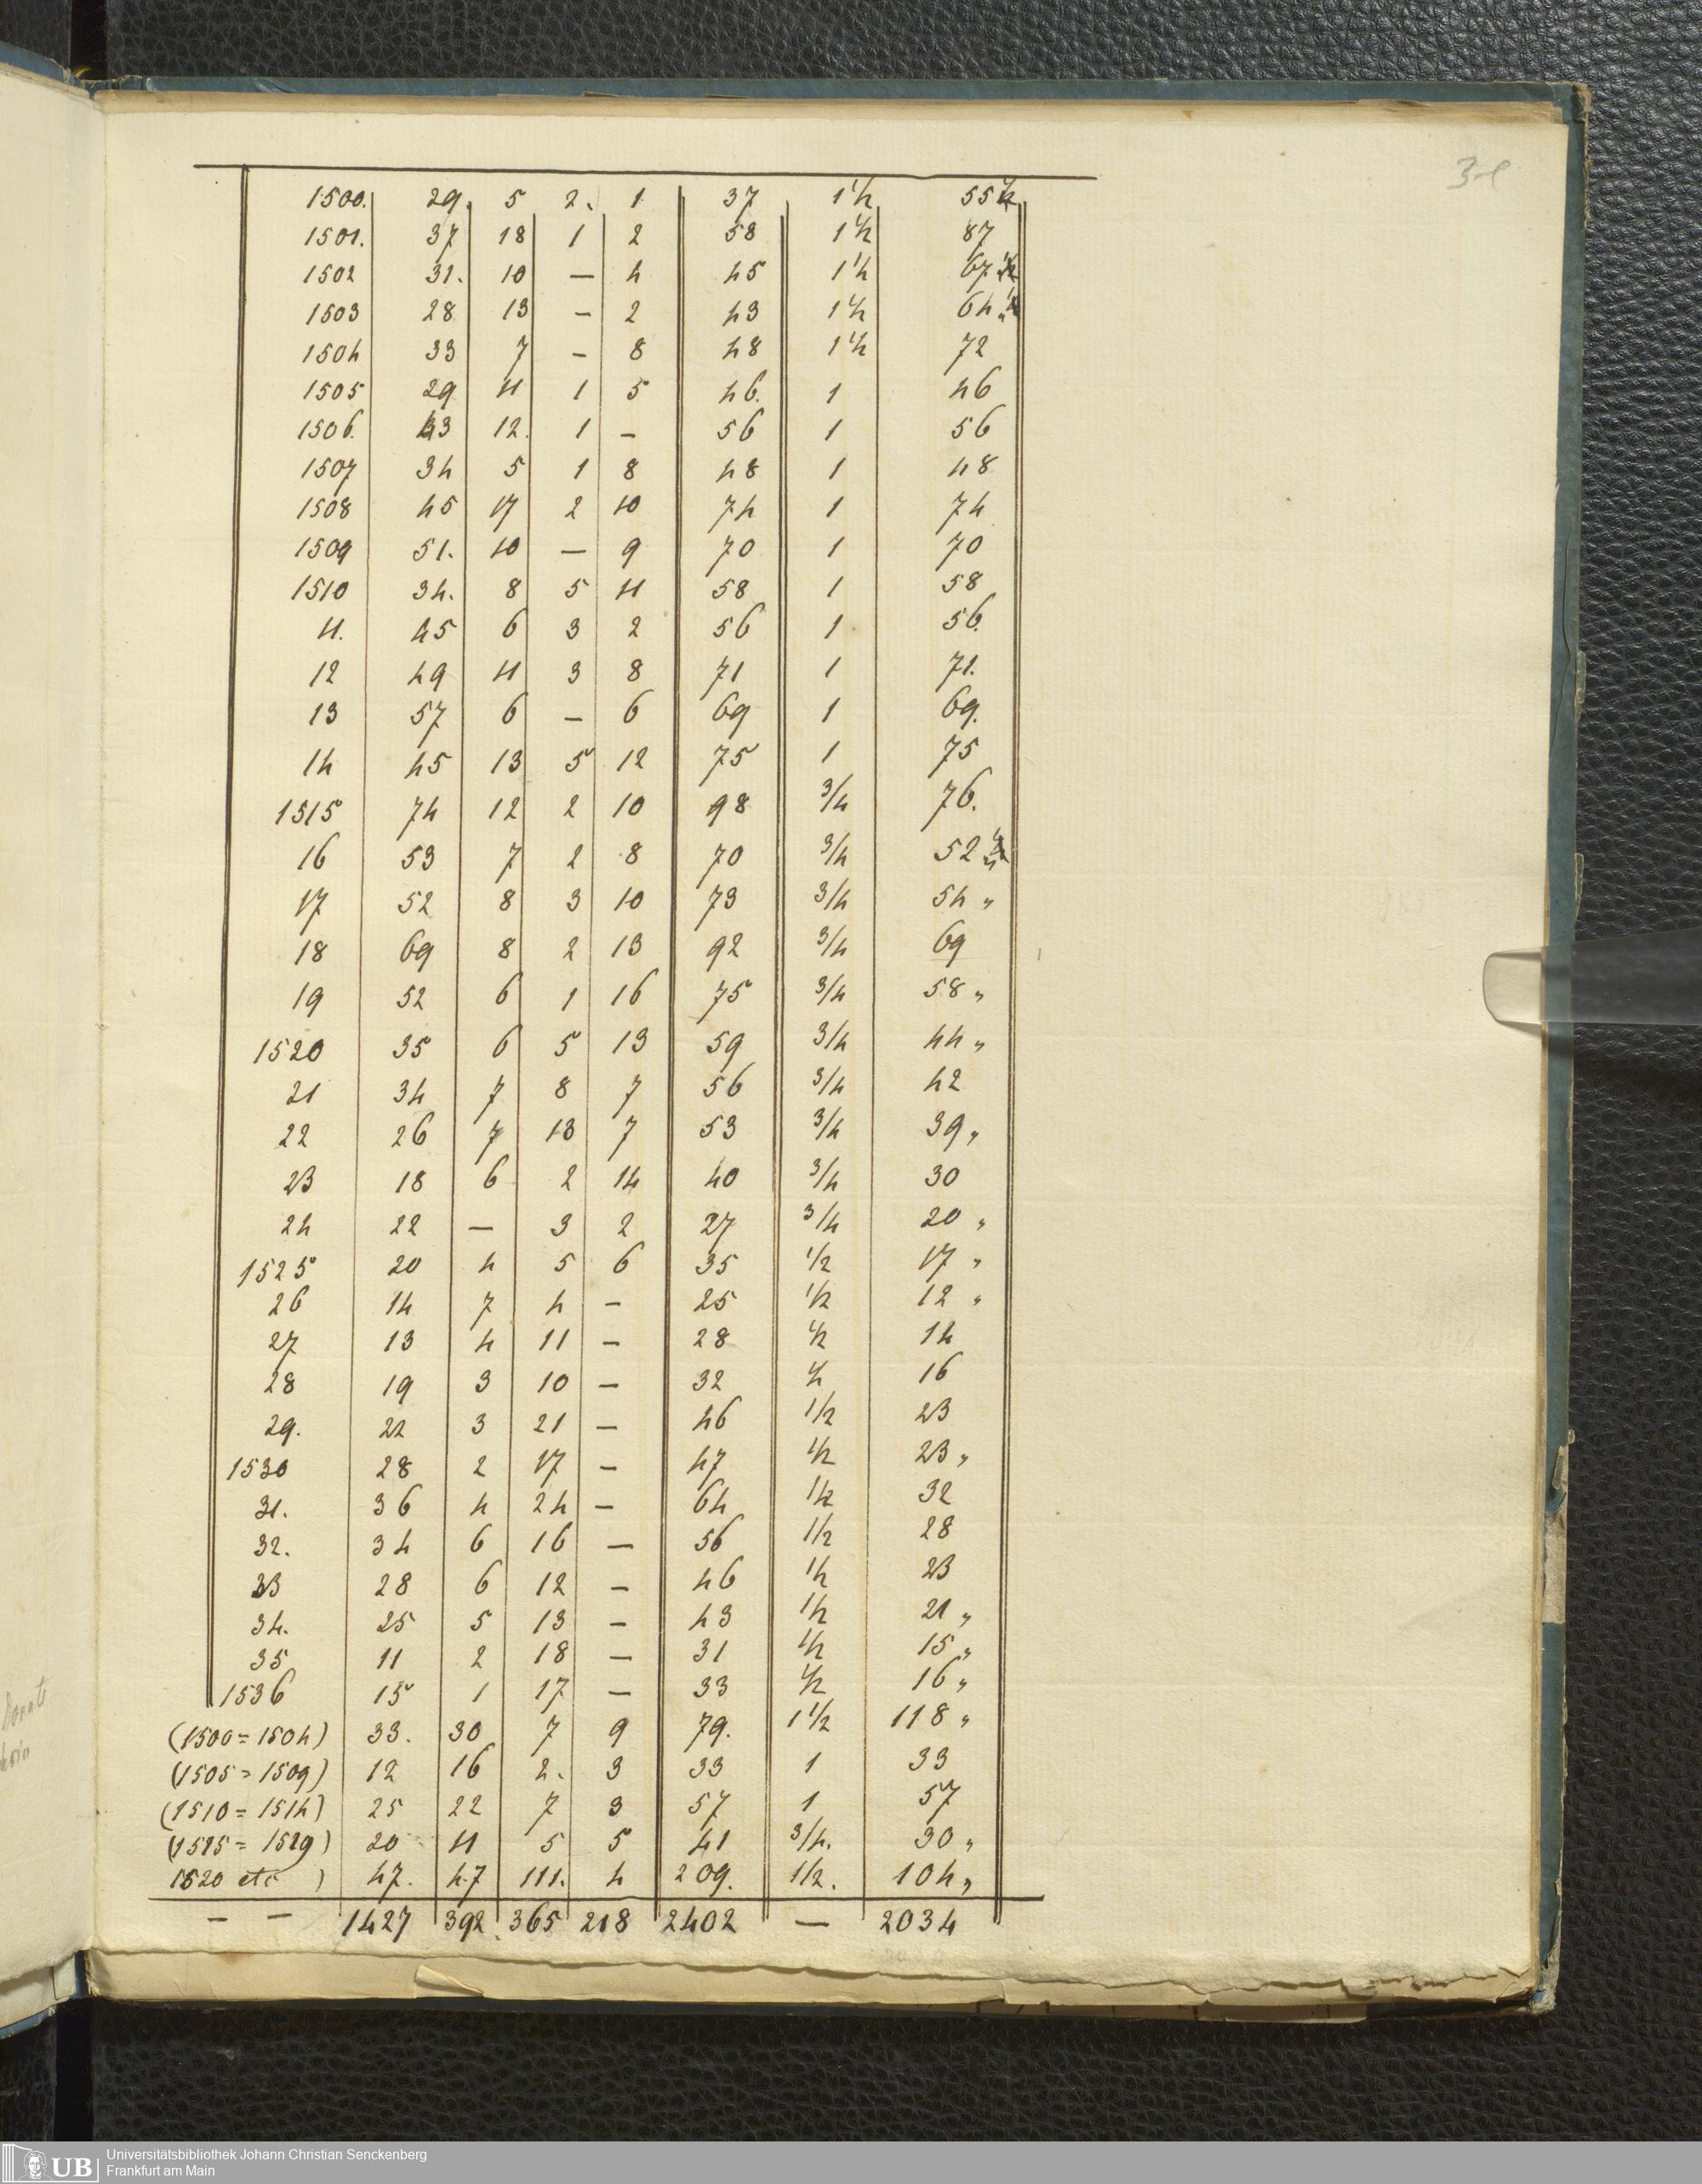 1500. 29. 5 2. 1 37 1 1/2 55 1/2
1501. 37 18 1 2 58 1 1/2 87
1502 31. 10 — 4 45 1 1/2 67 1/2
1503 28 13 — 2 43 1 1/2 64 1/2
1504 33 7 — 8 48 1 1/2 72
1505 29 11 1 5 46. 1 46
1506. 43 12. 1 — 56 1 56
1507 34 5 1 8 48 1 48
1508 45 17 2 10 74 1 74
1509 51. 10 — 9 70 1 70
1510 34. 8 5 11 58 1 58
11. 45 6 3 2 56 1 56.
12 49 11 3 8 71 1 71.
13 57 6 — 6 69 1 69.
14 45 13 5 12 75 1 75
1515 74 12 2 10 98 3/4 76.
16 53 7 2 8 70 3/4 52
17 52 8 3 10 73 3/4 54 "
18 69 8 2 13 92 3/4 69
19 52 6 1 16 75 3/4 58 "
1520 35 6 5 13 59 3/4 44 "
21 34 7 8 7 56 3/4 42
22 26 7 13 7 53 3/4 39 "
23 18 6 2 14 40 3/4 30
24 22 — 3 2 27 3/4 20 "
1525 20 4 5 6 35 1/2 17 "
26 14 7 4 — 25 1/2 12 "
27 13 4 11 — 28 1/2 14
28 19 3 10 — 32 1/2 16
29. 22 3 21 — 46 1/2 23
1530 28 2 17 — 47 1/2 23 "
31. 36 4 24 — 64 1/2 32
32. 34 6 16 — 56 1/2 28
33 28 6 12 — 46 1/2 23
34. 25 5 13 — 43 1/2 21 "
35 11 2 18 — 31 1/2 15 "
1536 15 1 17 — 33 1/2 16 "
(1500 = 1504) 33. 30 7 9 79. 1 1/2 118 "
(1505 = 1509) 12 16 2. 3 33 1 33
(1510 = 1514) 25 22 7 3 57 1 57
(1515 = 1519) 20 11 5 5 41 3/4. 30 "
1520 etc ) 47. 47 111. 4 209. 1/2. 104 "
— — 1427 392. 365 218 2402 — 2034
UB
Universitätsbibliothek Johann Christian Senckenberg
Frankfurt am Main